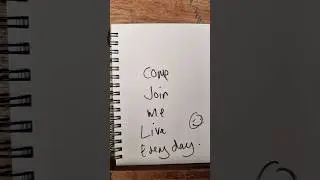 Come
Join
me
Live
Every day.